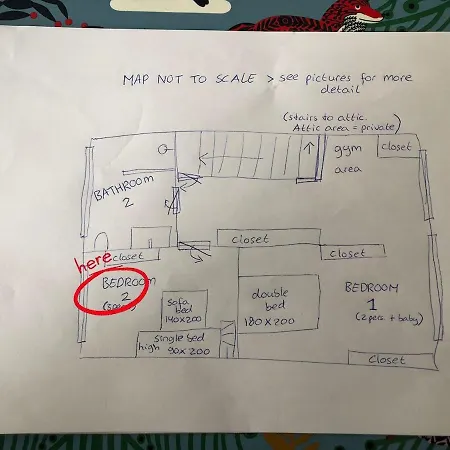 MAP NOT TO SCALE > see pictures for more
detail
(stairs to attic.
Attic area = private)
gym
area
closet
BATHROOM
2
closet
closet
closet
here
BEDROOM
2
sofa
bed
140x200
single bed
high 90x200
double
bed
180x200
BEDROOM
1
(2 pers. + baby)
closet